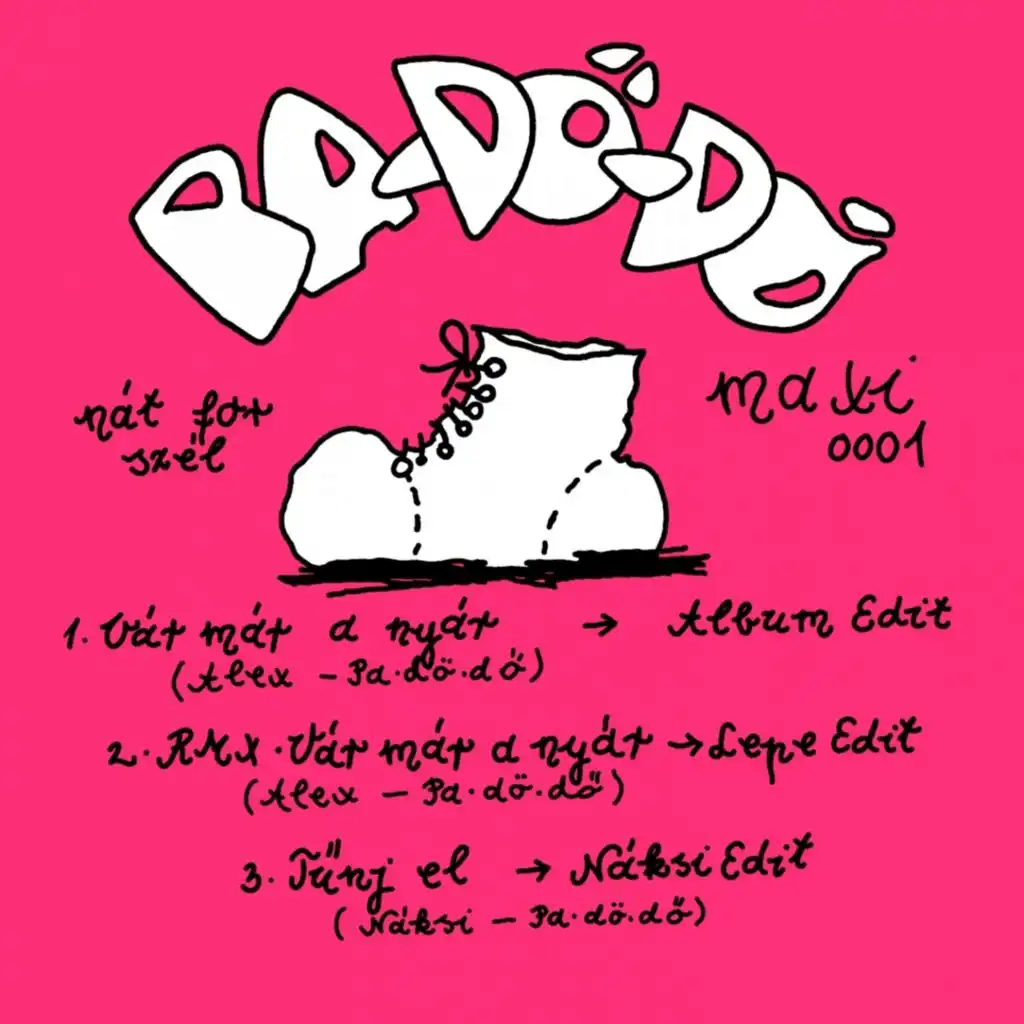 PA-DÖ-DŐ
nát for
szél
maxi
0001
1. Vár már a nyár → Album Edit
(Alex - Pa.dö.dő)
2. RMX. Vár már a nyár → Lepe Edit
(Alex - Pa.dö.dő)
3. Tűnj el → Náksi Edit
(Náksi - Pa.dö.dő)